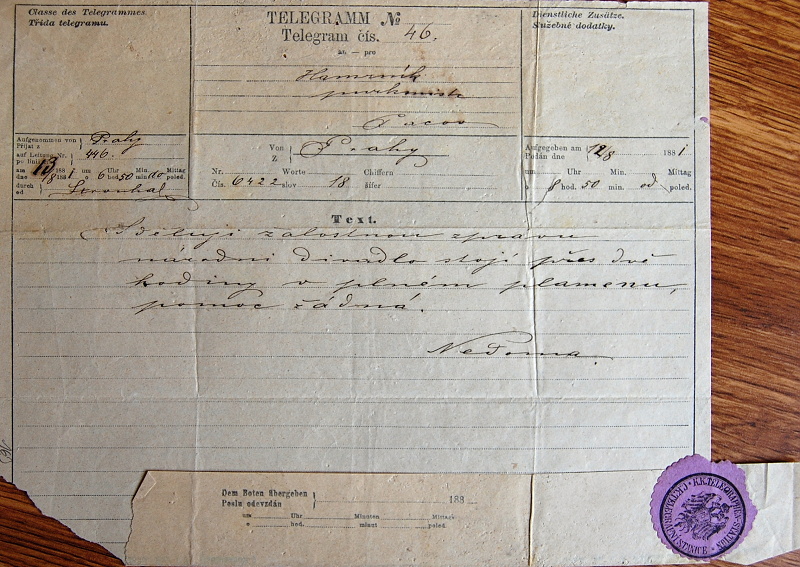 Classe des Telegrammes.
Třída telegramu.
TELEGRAMM №
Telegram čís. 46.
an. — pro
Hamrník
purkmistr
Pacov
Dienstliche Zusätze.
Služebné dodatky.
Aufgenommen von
Přijat z
Prahy
auf Leitung Nr.
po
446.
am
dne
13/8 1881
um Uhr Min. Mittag
o 6 hod. 50 min. poled.
durch
od
Von
Z
Prahy
Nr. Worte Chiffern
Čís. 6422 slov 18 šifer
Aufgegeben am
Podán dne
12/8 1881
um Uhr Min. Mittag
o 8 hod. 50 min. od poled.
Text.
Sděluji žalostnou zprávu
národní divadlo stojí přes dvě
hodiny v plném plamenu,
pomoc žádná.
Nedoma.
Dem Boten übergeben
Poslu odevzdán
188
um Uhr Minuten Mittag
o hod. minut poled.
K.K. TELEGRAPHEN-STATION